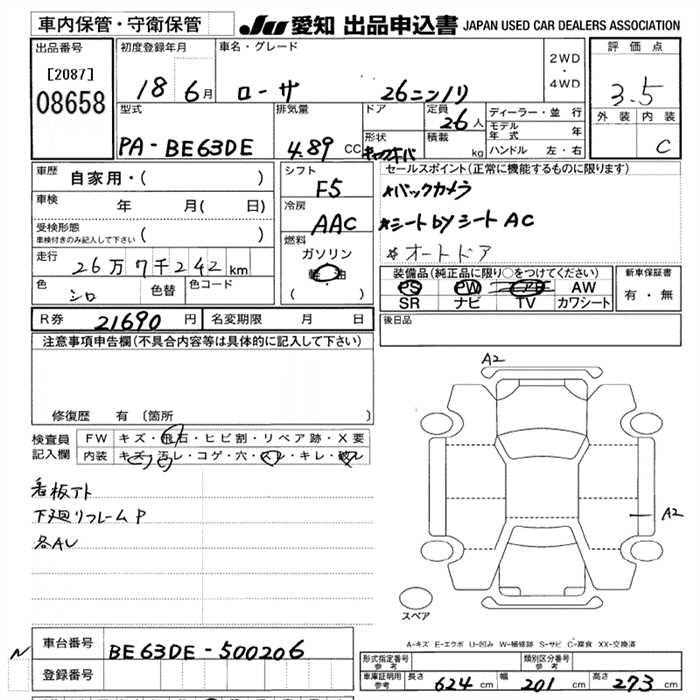 車内保管・守衛保管
JU 愛知 出品申込書 JAPAN USED CAR DEALERS ASSOCIATION
出品番号
[2087]
08658
初度登録年月
18 6月
車名・グレード
ローザ 26ニンノリ
2WD
・
4WD
評価点
3.5
外装 内装
C
型式
PA-BE63DE
排気量
4.89 CC
ドア
形状
定員
26人
積載
kg
ディーラー・並行
モデル年式 年
ハンドル 左・右
車歴
自家用・( )
車検
年 月( 日)
受検形態
車検付きのみ記入して下さい ( )
走行
26万7千242km
色
シロ
色替
色コード
シフト
F5
冷房
AAC
燃料
ガソリン
軽油
( )
セールスポイント(正常に機能するものに限ります)
*バックカメラ
*シートbyシートAC
*オートドア
装備品(純正品に限り○をつけてください)
PS PW AW
SR ナビ TV カワシート
新車保証書
有・無
R券 21690円
名変期限 月 日
後日品
注意事項申告欄(不具合内容等は具体的に記入して下さい)
修復歴 有〔箇所 〕
検査員
記入欄
FW キズ・飛石・ヒビ割・リペア跡・X要
内装 キズ・汚レ・コゲ・穴・スレ・キレ・破レ
看板アト
下廻リフレームP
各AU
A2
A2
スペア
A-キズ E-エクボ U-凹み W-補修跡 S-サビ C-腐食 XX-交換済
N
車台番号
BE63DE-500206
登録番号
形式指定番号
参考
類別区分番号
参考
車庫証明用
参考
長さ 624cm 幅 201cm 高さ 273cm